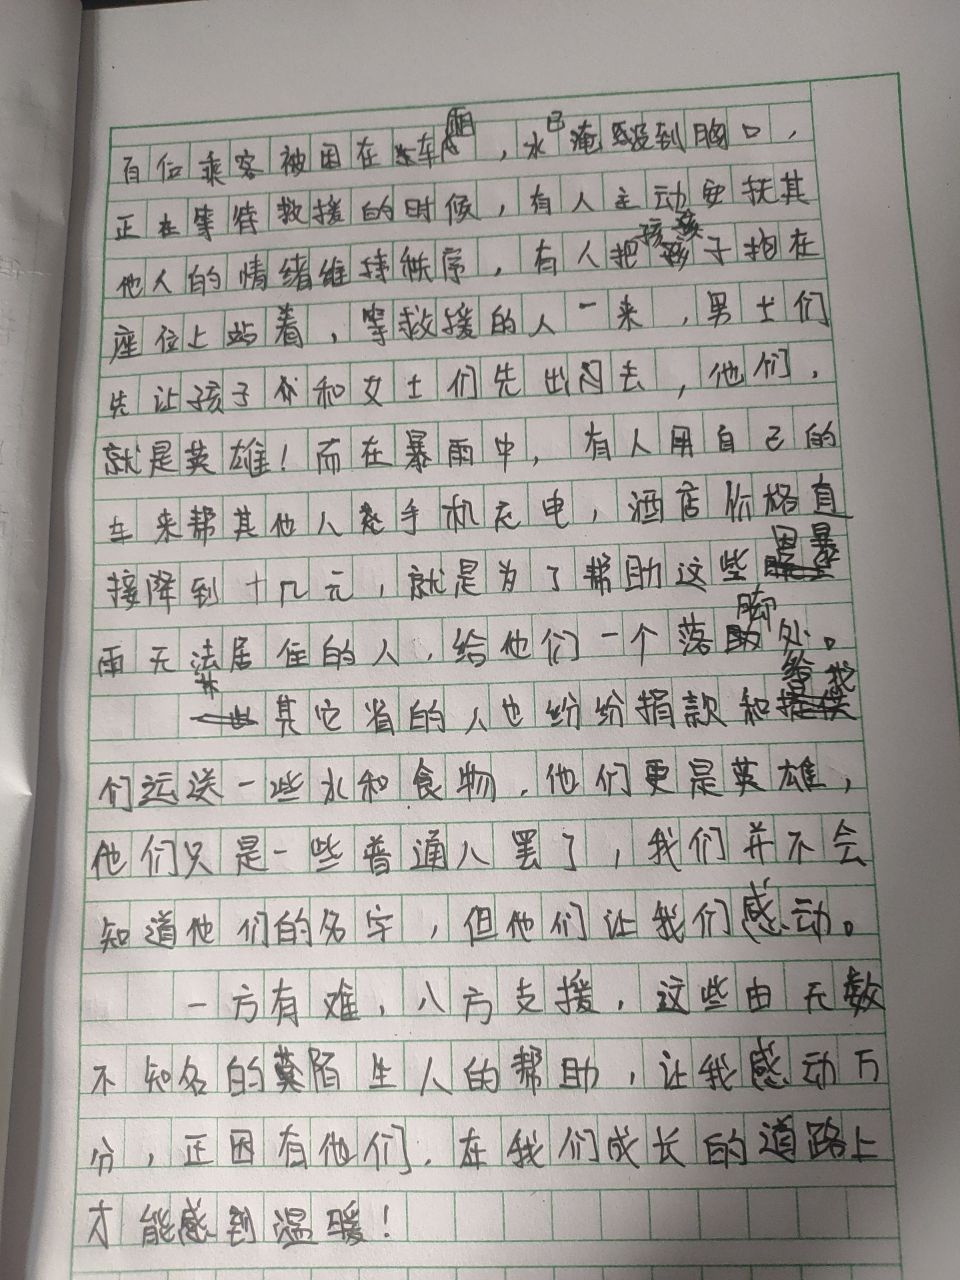 百位乘客被困在车厢，水已淹到胸口，
正在等待救援的时候，有人主动安抚其
他人的情绪维持秩序，有人把孩子抱在
座位上站着，等救援的人一来，男士们
先让孩子和女士们先出去，他们，
就是英雄！而在暴雨中，有人用自己的
车来帮其他人给手机充电，酒店价格直
接降到十几元，就是为了帮助这些因暴
雨无法居住的人，给他们一个落脚处。
其它省的人也纷纷捐款和给我
们运送一些水和食物，他们更是英雄，
他们只是一些普通人罢了，我们并不会
知道他们的名字，但他们让我们感动。
一方有难，八方支援，这些由无数
不知名的陌生人的帮助，让我感动万
分，正因有他们，在我们成长的道路上
才能感到温暖！